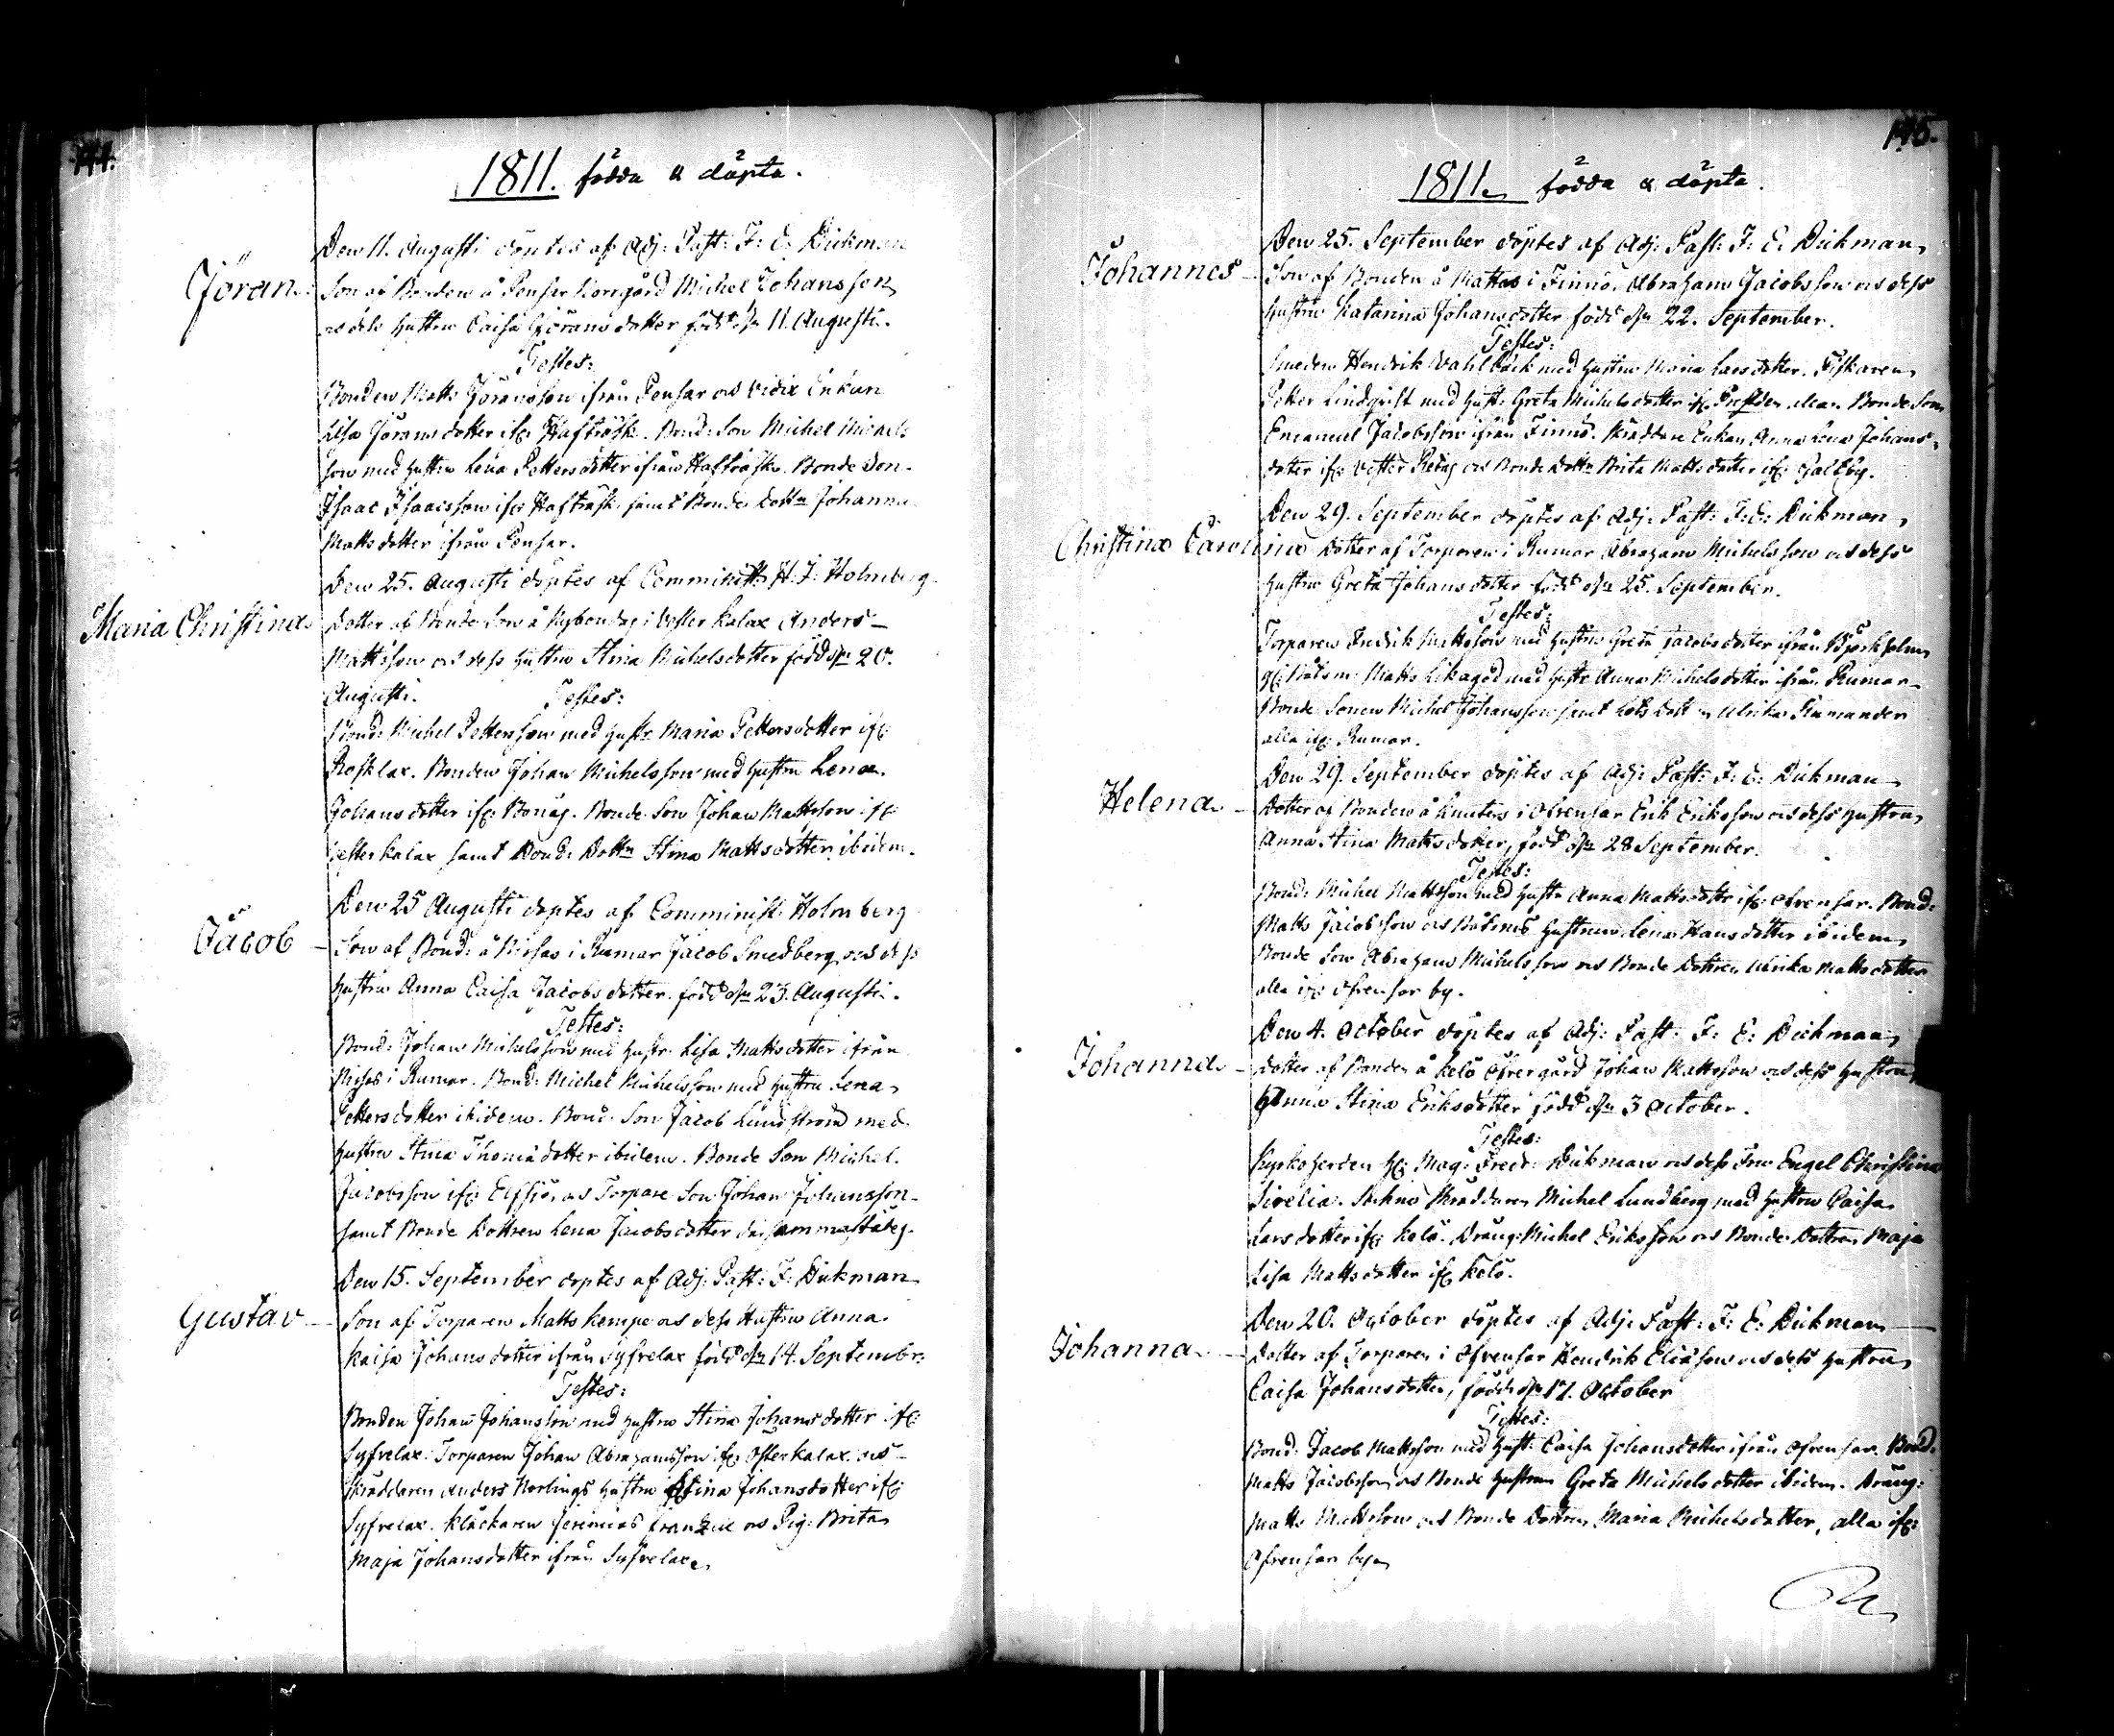 144.
1811. födda & döpta.
Jöran.
Den 11. Augusti döptes af Adj: Past: F: E: Dickman
Son af Bonden å Pensar Norrgård Michel Johansson
och dess hustru Caisa Göransdotter född d. 11. Augusti.
Testes:
Bonden Matts Göransson ifrån Pensar och Enkan
Lisa Göransdotter ifr. Hafträsk. Bond: Son Michel Michels
son med hustru Lena Pettersdotter ifrån Hafträsk. Bonde Son
Isaac Isaacsson ifr. Hafträsk samt Bonde Dottn Johanna
Mattsdotter ifrån Pensar.
Maria Christina.
Den 25. Augusti döptes af Comminist: H: J: Holmberg
Dotter af Bonde Son å Nybondas i Vester Kalax Anders
Mattsson och dess hustru Stina Michelsdotter född d. 20.
Augusti. Testes:
Bond: Michel Pettersson med hustr. Maria Pettersdotter ifr:
Rosklax. Bonden Johan Michelsson med hustru Lena
Johansdotter ifr. Bonäs. Bonde Son Johan Mattsson ifr:
Vesterkalax samt Bond: Dottn Stina Mattsdotter ibidem.
Jacob –
Den 25 Augusti döptes af Comminist: Holmberg
Son af Bond: å Nissas i Rumar Jacob Smedberg och dess
hustru Anna Caisa Jacobsdotter född d. 23. Augusti.
Testes:
Bond: Johan Michelsson med hustr. Lisa Mattsdotter ifrån
Nissas i Rumar. Bond: Michel Michelsson med hustru Lena
Pettersdotter ibidem. Bond: Son Jacob Lundström med
hustru Stina Thomasdotter ibidem. Bonde Son Michel
Jacobsson ifr: Elfsjö, och Torpare Son Johan Johansson
samt Bonde Dottren Lena Jacobsdotter därsammastädes.
Gustav –
Den 15. September döptes af Adj: Past: F: Dickman
Son af Torparen Matts Kempe och dess Hustru Anna
Kaisa Johansdotter ifrån Syfvelax född d. 14. Septembr:
Testes:
Bonden Johan Johansson med hustru Stina Johansdotter ifr:
Syfvelax. Torparen Johan Abrahamsson ifr: Österkalax och
Skräddaren Anders Norlings hustru Stina Johansdotter ifr:
Syfvelax. Klåckaren Jeremias Franzén och Pig: Brita
Maja Johansdotter ifrån Syfvelax.
145.
1811. födda & döpta.
Johannes –
Den 25. September döptes af Adj: Past: F: E: Dickman
Son af Bonden å Mattas i Finnö Abraham Jacobsson och dess
hustru Katarina Johansdotter född d. 22. September.
Testes:
Smeden Hendrik Wahlbäck med hustru Maria Larsdotter. Fiskaren
Petter Lindqvist med hust: Greta Michelsdotter ifr. Bonde Son
Emanuel Jacobsson ifrån Finnö. Skräddare Enkan Anna Lena Johans-
dotter ifr. Vester Retais och Bonde Dottn Brita Mattsdotter ifr. Galtby.
Christina Carolina
Den 29. September döptes af Adj: Past: F: E: Dickman
Dotter af Torparen i Rumar Abraham Michelsson och dess
hustru Greta Johansdotter född d. 25. September.
Testes:
Torparen Fredrik Mattsson med hustru Greta Jacobsdotter ifrån Björkholm
Båtsm: Matts Likagod med hustr Anna Michelsdotter ifrån Rumar
Bonde Sonen Michel Johansson samt Lots Dott: Ulrika Rumander
alla ifr. Rumar.
Helena –
Den 29. September döptes af Adj: Past: F: E: Dickman
Dotter af Bonden å Knuters i Ofvensar Erik Eriksson och dess hustru
Anna Stina Mattsdotter, född d. 28 September.
Testes:
Bond: Michel Mattsson med hustr Anna Mattsdottr ifr: Ofvensar. Bond:
Matts Jacobsson och Båtsmans hustrun Lena Hansdotter ibidem
Bonde Son Abraham Michelsson och Bonde Dottren Ulrika Mattsdotter
alla ifr: Ofvensar by.
Johanna –
Den 4. October döptes af Adj: Past: F: E: Dickman
Dotter af Bonden å Kelö Öfvergård Johan Mattsson och dess hustru
Anna Stina Eriksdotter född d. 3 October.
Testes:
Kyrkoherden H: Mag: Fredr: Dickman och dess Fru Engel Christina
Sirelia. Sockne Skräddaren Michel Lundberg med hustru Caisa
Larsdotter ifr. Kelö. Dräng: Michel Eriksson och Bonde Dottren Maja
Lisa Mattsdotter ifr. Kelö.
Johanna –
Den 20. October döptes af Adj: Past: F: E: Dickman
Dotter af Torparen i Ofvensar Hendrik Eliasson och dess hustru
Caisa Johansdotter, född d. 17. October
Testes:
Bond: Jacob Mattsson med hust: Caisa Johansdotter ifrån Ofvensar. Bond:
Matts Jacobsson och Bonde hustrun Greta Michelsdotter ibidem. Dräng:
Matts Mattsson och Bonde Dottren Maria Michelsdotter, alla ifr:
Ofvensar by.